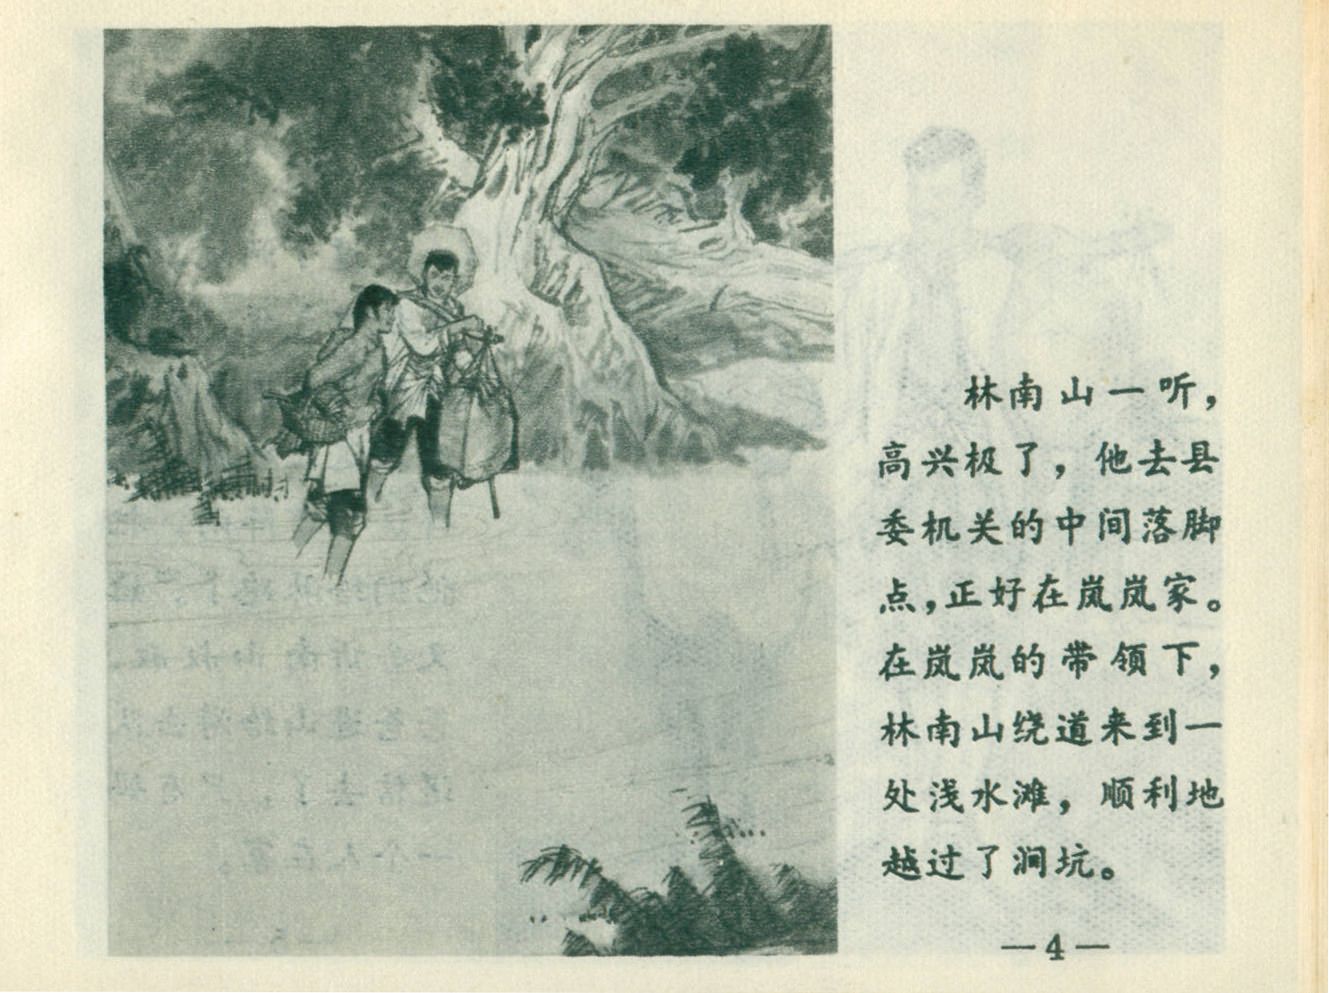 林南山一听，
高兴极了，他去县
委机关的中间落脚
点，正好在岚岚家。
在岚岚的带领下，
林南山绕道来到一
处浅水滩，顺利地
越过了涧坑。
—4—